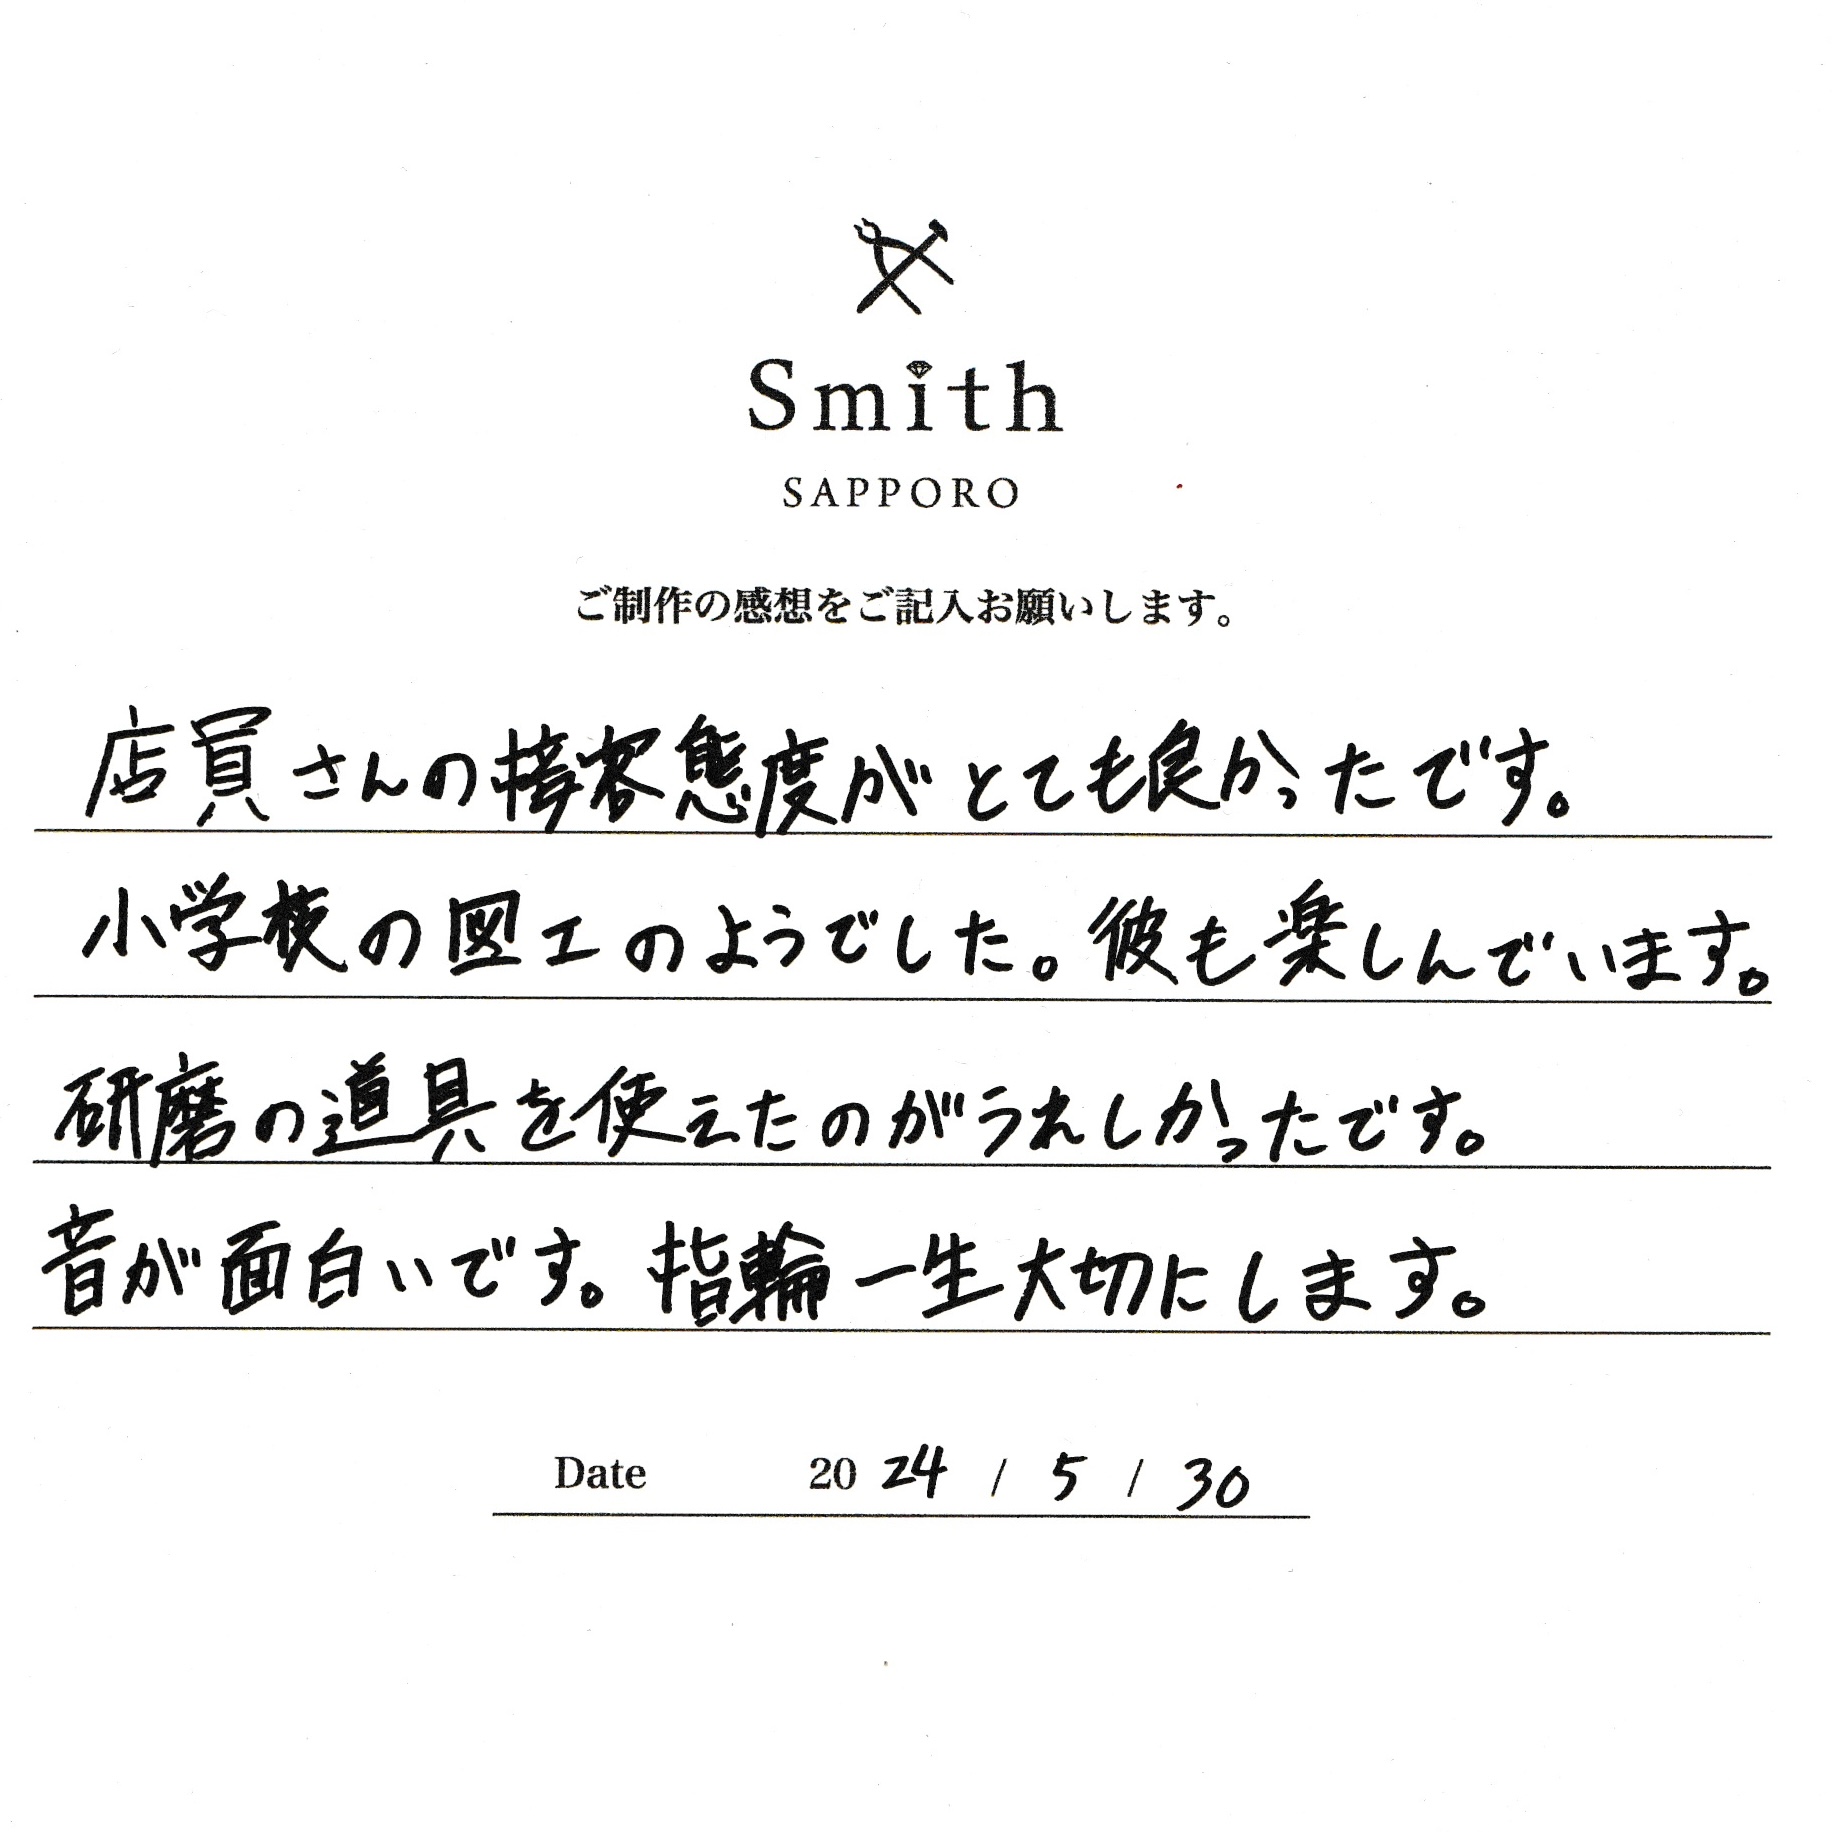 Smith
SAPPORO
ご制作の感想をご記入お願いします。
店員さんの接客態度がとても良かったです。
小学校の図工のようでした。彼も楽しんでいます。
研磨の道具を使えたのがうれしかったです。
音が面白いです。指輪一生大切にします。
Date 2024 / 5 / 30